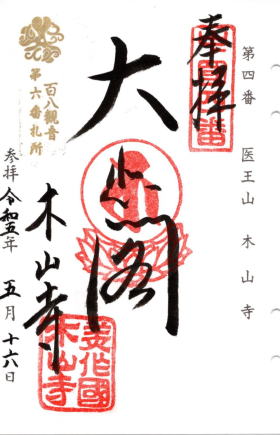 第四番 医王山 木山寺
奉拝
大悲閣
木山寺
百八観音
第六番札所
参拝 令和五年 五月十六日
美作國
木山寺